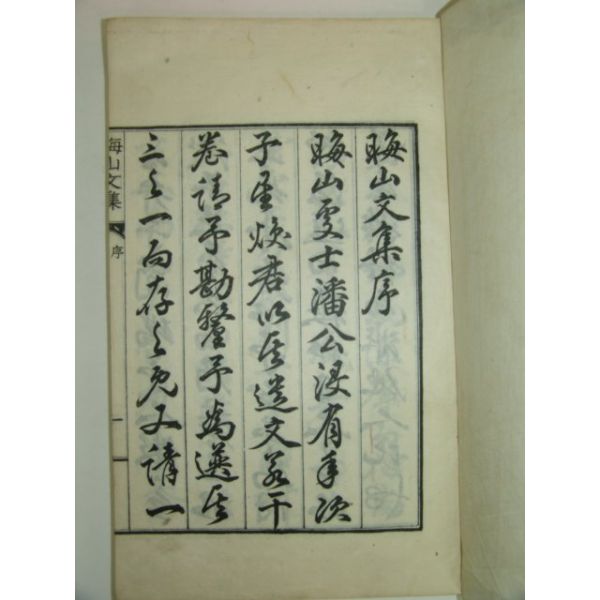 晦山文集序
晦山處士潘公沒有年次
子星煥君以其遺文若干
卷請予勘釐予為選其
三之一而存之旣又請一
晦山文集 序 一